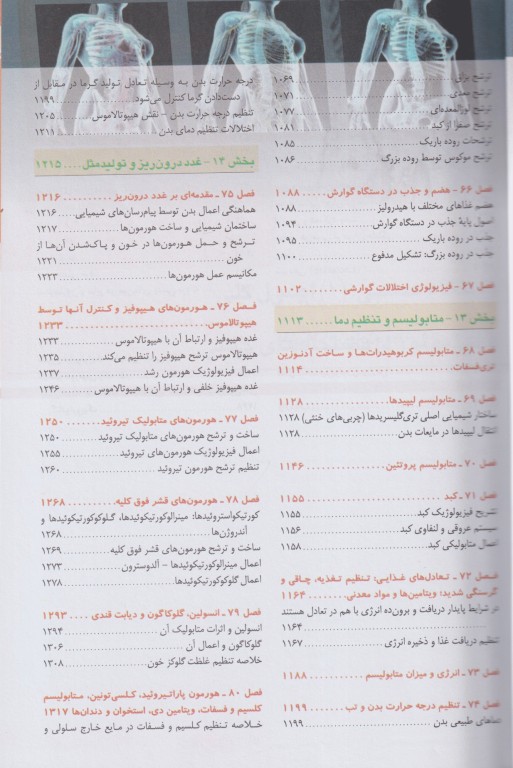 ترشح بزاق ۱۰۶۹
ترشح معدی ۱۰۷۱
ترشح لوزالمعده‌ای ۱۰۷۷
ترشح صفرا از کبد ۱۰۸۱
ترشحات روده باریک ۱۰۸۵
ترشح موکوس توسط روده بزرگ ۱۰۸۶
فصل ۶۶ - هضم و جذب در دستگاه گوارش ۱۰۸۸
هضم غذاهای مختلف با هیدرولیز ۱۰۸۸
اصول پایهٔ جذب در دستگاه گوارش ۱۰۹۴
جذب در روده باریک ۱۰۹۵
جذب در روده بزرگ: تشکیل مدفوع ۱۱۰۰
فصل ۶۷ - فیزیولوژی اختلالات گوارشی ۱۱۰۲
بخش ۱۳ - متابولیسم و تنظیم دما ۱۱۱۳
فصل ۶۸ ـ متابولیسم کربوهیدرات‌ها و ساخت آدنوزین
تری‌فسفات ۱۱۱۴
فصل ۶۹ ـ متابولیسم لیپیدها ۱۱۲۸
ساختار شیمیایی اصلی تری‌گلیسریدها (چربی‌های خنثی) ۱۱۲۸
انتقال لیپیدها در مایعات بدن ۱۱۲۸
فصل ۷۰ ـ متابولیسم پروتئین ۱۱۴۶
فصل ۷۱ ـ کبد ۱۱۵۵
تشریح فیزیولوژیک کبد ۱۱۵۵
سیستم عروقی و لنفاوی کبد ۱۱۵۶
اعمال متابولیکی کبد ۱۱۵۸
فصل ۷۲ ـ تعادل‌های غذایی: تنظیم تغذیه، چاقی و
گرسنگی شدید: ویتامین‌ها و مواد معدنی ۱۱۶۴
در شرایط پایدار دریافت و برون‌ده انرژی با هم در تعادل هستند
۱۱۶۴
تنظیم دریافت غذا و ذخیره انرژی ۱۱۶۷
فصل ۷۳ ـ انرژی و میزان متابولیسم ۱۱۸۸
فصل ۷۴ ـ تنظیم درجه حرارت بدن و تب ۱۱۹۹
دماهای طبیعی بدن ۱۱۹۹
درجه حرارت بدن به وسیله تعادل تولید گرما در مقابل از
دست‌دادن گرما کنترل می‌شود ۱۱۹۹
تنظیم درجه حرارت بدن - نقش هیپوتالاموس ۱۲۰۵
اختلالات تنظیم دمای بدن ۱۲۱۱
بخش ۱۴ - غدد درون‌ریز و تولیدمثل ۱۲۱۵
فصل ۷۵ ـ مقدمه‌ای بر غدد درون‌ریز ۱۲۱۶
هماهنگی اعمال بدن توسط پیام‌رسان‌های شیمیایی ۱۲۱۶
ساختمان شیمیایی و ساخت هورمون‌ها ۱۲۱۷
ترشح و حمل هورمون‌ها در خون و پاک‌شدن آن‌ها از
خون ۱۲۲۱
مکانیسم عمل هورمون‌ها ۱۲۲۳
فصل ۷۶ ـ هورمون‌های هیپوفیز و کنترل آنها توسط
هیپوتالاموس ۱۲۳۳
غده هیپوفیز و ارتباط آن با هیپوتالاموس ۱۲۳۳
هیپوتالاموس ترشح هیپوفیز را تنظیم می‌کند ۱۲۳۵
اعمال فیزیولوژیک هورمون رشد ۱۲۳۷
غده هیپوفیز خلفی و ارتباط آن با هیپوتالاموس ۱۲۴۶
فصل ۷۷ ـ هورمون‌های متابولیک تیروئید ۱۲۵۰
ساخت و ترشح هورمون‌های متابولیک تیروئید ۱۲۵۰
اعمال فیزیولوژیک هورمون‌های تیروئید ۱۲۵۵
تنظیم ترشح هورمون تیروئید ۱۲۶۰
فصل ۷۸ ـ هورمون‌های قشر فوق کلیه ۱۲۶۸
کورتیکواستروئیدها: مینرالوکورتیکوئیدها، گلوکوکورتیکوئیدها و
آندروژن‌ها ۱۲۶۸
ساخت و ترشح هورمون‌های قشر فوق کلیه ۱۲۶۹
اعمال مینرالوکورتیکوئیدها - آلدوسترون ۱۲۷۳
اعمال گلوکوکورتیکوئیدها ۱۲۷۸
فصل ۷۹ ـ انسولین، گلوکاگون و دیابت قندی ۱۲۹۳
انسولین و اثرات متابولیک آن ۱۲۹۴
گلوکاگون و اعمال آن ۱۳۰۶
خلاصه تنظیم غلظت گلوکز خون ۱۳۰۸
فصل ۸۰ ـ هورمون پاراتیروئید، کلسی‌تونین، متابولیسم
کلسیم و فسفات، ویتامین دی، استخوان و دندان‌ها ۱۳۱۷
خلاصه تنظیم کلسیم و فسفات در مایع خارج سلولی و